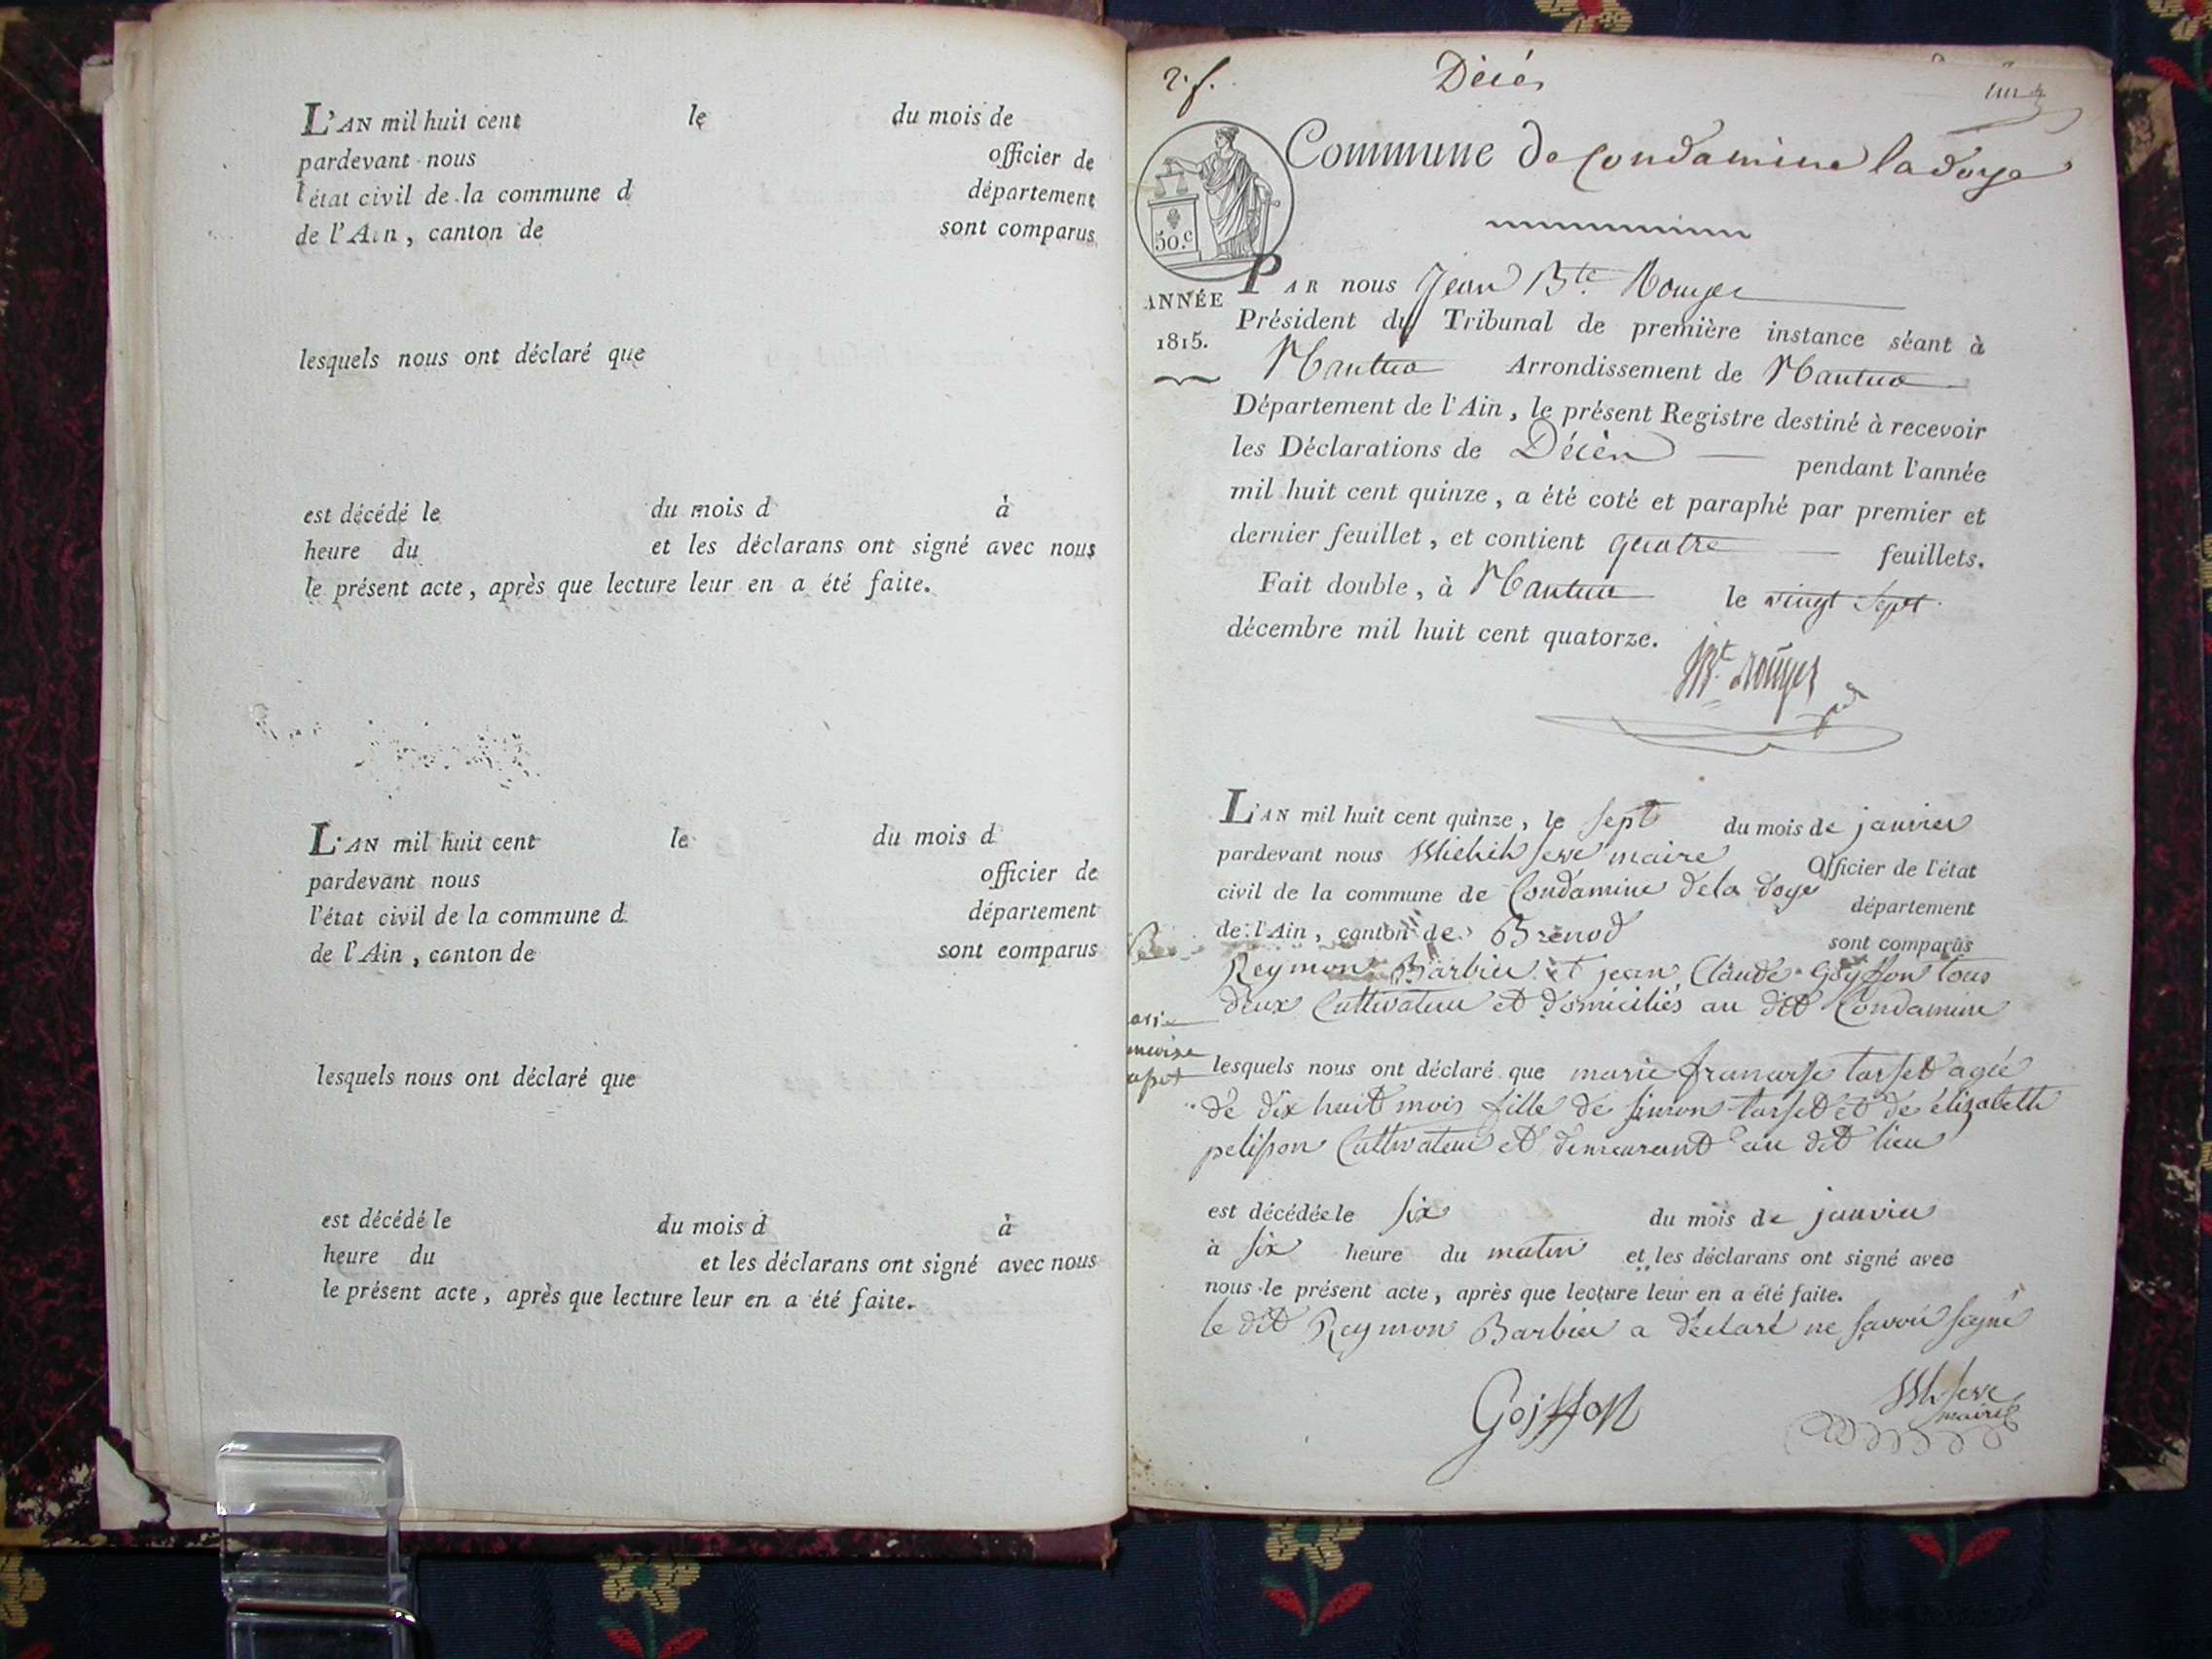 L'AN mil huit cent le du mois de
pardevant nous officier de
l'état civil de la commune d département
de l'Ain, canton de sont comparus
lesquels nous ont déclaré que
est décédé le du mois d à
heure du et les déclarans ont signé avec nous
le présent acte, après que lecture leur en a été faite.
L'AN mil huit cent le du mois d
pardevant nous officier de
l'état civil de la commune d département
de l'Ain, canton de sont comparus
lesquels nous ont déclaré que
est décédé le du mois d à
heure du et les déclarans ont signé avec nous
le présent acte, après que lecture leur en a été faite.
2. f. Décès
Commune de Condamine la doye
50.c
ANNÉE
1815.
PAR nous Jean Bte. Rouyer
Président du Tribunal de première instance séant à
Nantua Arrondissement de Nantua
Département de l'Ain, le présent Registre destiné à recevoir
les Déclarations de Décès pendant l'année
mil huit cent quinze, a été coté et paraphé par premier et
dernier feuillet, et contient quatre feuillets.
Fait double, à Nantua le vingt sept
décembre mil huit cent quatorze.
JBt. Rouyer
L'AN mil huit cent quinze, le sept du mois de janvier
pardevant nous seve maire Officier de l'état
civil de la commune de Condamine dela doye département
de l'Ain, canton de Brenod sont comparus
Reymon Barbier et jean Claude Goyffon tous
deux Cultivateur et domiciliés au dit Condamine
lesquels nous ont déclaré que marie francoise tarpet agée
de dix huit mois fille de simon tarpet et de élizabette
pelisson Cultivateur et demeurant au dit lieu
est décédée le six du mois de janvier
à six heure du matin et les déclarans ont signé avec
nous le présent acte, après que lecture leur en a été faite.
le dit Reymon Barbier a déclaré ne savoir signé
Goiffon
seve
maire